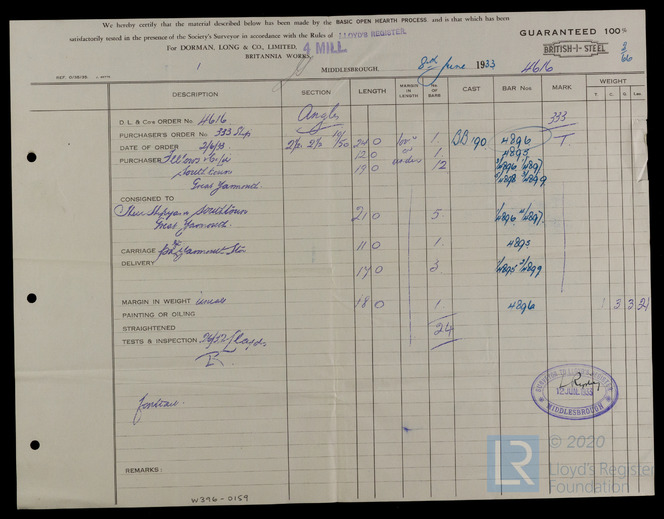 We hereby certify that the material described below has been made by the BASIC OPEN HEARTH PROCESS and is that which has been
satisfactorily tested in the presence of the Society's Surveyor in accordance with the Rules of LLOYD'S REGISTER.
For DORMAN, LONG & CO., LIMITED,
4 MILL.
BRITANNIA WORKS,
GUARANTEED 100%
BRITISH-I-STEEL
3/66
MIDDLESBROUGH, 8th June 1933 4616
DESCRIPTION SECTION LENGTH MARGIN IN LENGTH No. OF BARS CAST BAR Nos. MARK WEIGHT
T. C. Q. Lbs.
D. L. & Co's ORDER No. 4616 Angles 333
PURCHASER'S ORDER No. 333 Ship
DATE OF ORDER 2/6/33 2½ 2½ 24 0 1. BB 190 4896 T.
12 0 1. 4895
PURCHASER Fellows & Co Ld 19 0 under 12
Southtown
Great Yarmouth.
CONSIGNED TO
Their Shipyard Southtown 21 0 5.
Great Yarmouth.
CARRIAGE Yarmouth Stn 11 0 1. 4895
DELIVERY 17 0 3.
MARGIN IN WEIGHT 18 0 1 4896 1 3 3 21
PAINTING OR OILING
STRAIGHTENED 24
TESTS & INSPECTION 26/32 Lloyds
12 JUN 1933
MIDDLESBROUGH
REMARKS :
W396-0159
LR © 2020
Lloyd's Register
Foundation